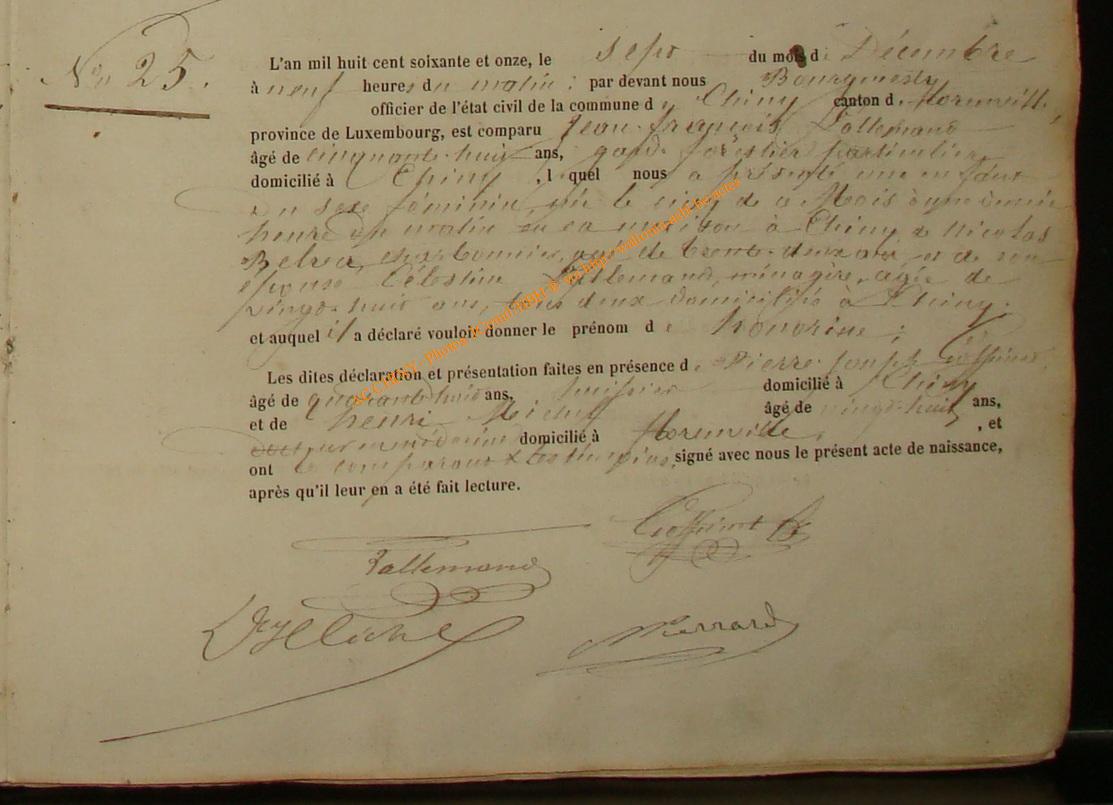 No 25.
L'an mil huit cent soixante et onze, le sept du mois d Décembre
à neuf heures du matin ; par devant nous Bourgmestre
officier de l'état civil de la commune de Chiny canton de Florenville,
province de Luxembourg, est comparu Jean françois Lallemand
âgé de cinquante huit ans, garde forestier particulier
domicilié à Chiny , l quel nous a présenté un enfant
du sexe féminin, née le cinq de ce Mois à une
heure du matin en sa maison à Chiny de Nicolas
charbonnier, agé de trente deux ans et de son
épouse Célestine Lallemand, ménagère, agée de
vingt huit ans, tous deux domiciliés à Chiny.
et auquel il a déclaré vouloir donner le prénom d e honorine ;
Les dites déclaration et présentation faites en présence de Pierre Joseph
âgé de quarante huit ans, huissier domicilié à Chiny
et de henri Michel âgé de vingt huit ans,
docteur en médecine domicilié à Florenville , et
ont le comparant & les témoins, signé avec nous le présent acte de naissance,
après qu'il leur en a été fait lecture.
Lallemand